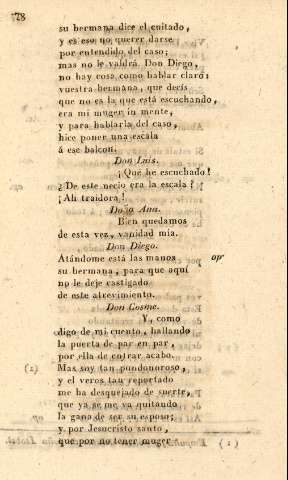 78
su hermana dice el cuitado,
y es eso no querer darse
por entendido del caso;
mas no le valdrá. Don Diego,
no hay cosa como hablar claro:
vuestra hermana, que decís
que no es la que está escuchando,
era mi muger in mente,
y para hablarla del caso,
hice poner una escala
á ese balcon.
Don Luis.
¡Qué he escuchado!
¿De este necio era la escala?
¡Ah traidora!
Doña Ana.
Bien quedamos
de esta vez, vanidad mia.
Don Diego.
Atándome está las manos apr
su hermana, para que aquí
no le deje castigado
de este atrevimiento.
Don Cosme.
Y, como
digo de mi cuento, hallando
la puerta de par en par,
por ella de entrar acabo.
(2) Mas soy tan pundonoroso,
y el veros tan reportado
me ha desquejado de suerte,
que ya se me va quitando
la gana de ser su esposo;
y por Jesucristo santo,
que por no tener muger